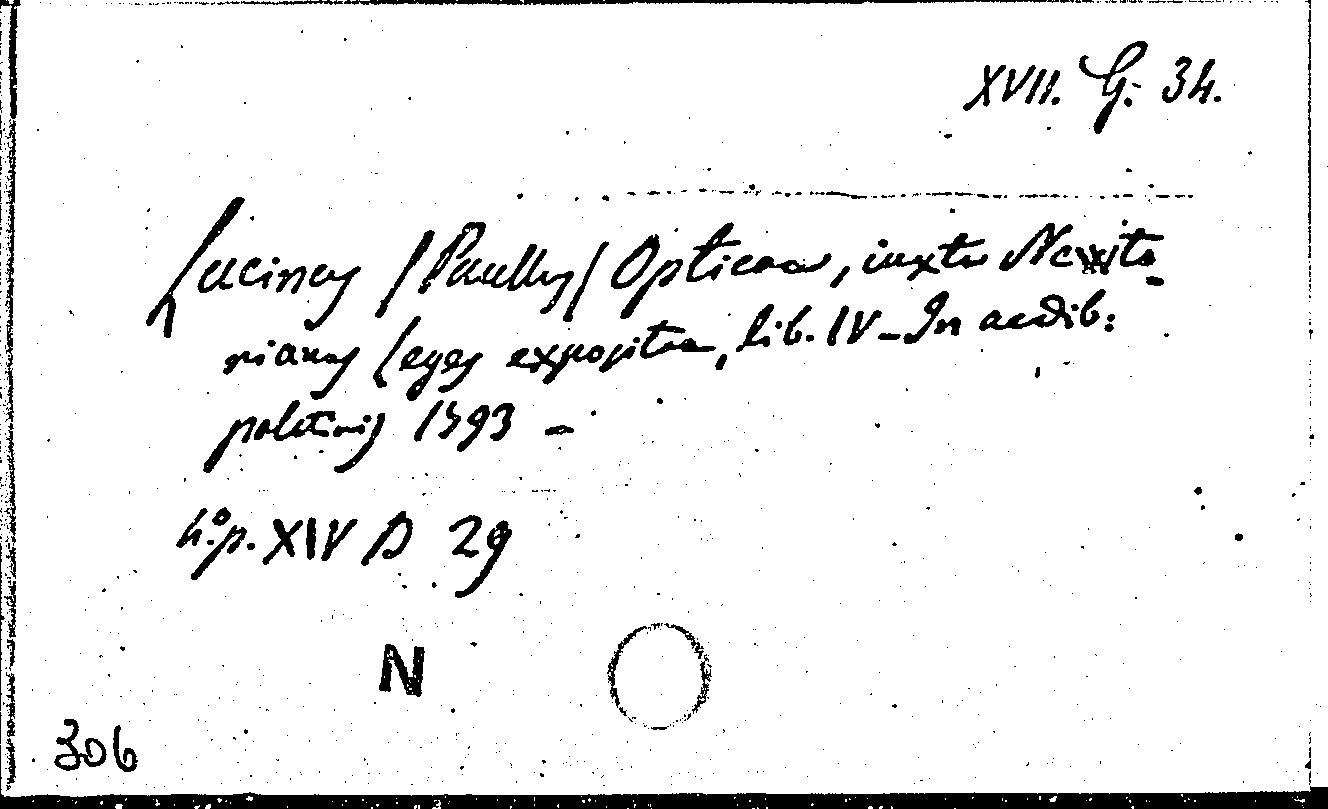 XVII. G. 34.
Lucinas /Paullus/ Opticae, iuxta Newto-
nianas leges expositae, lib. IV - In aedib:
palatinis 1793 -
4.° p. XIV D 29
N
306